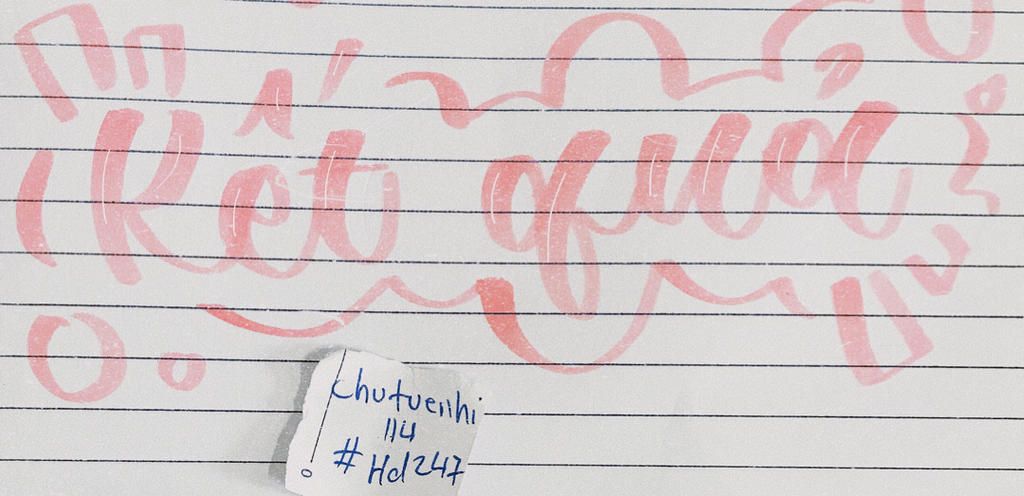 Kết quả
chutuenhi
114
#Hd247